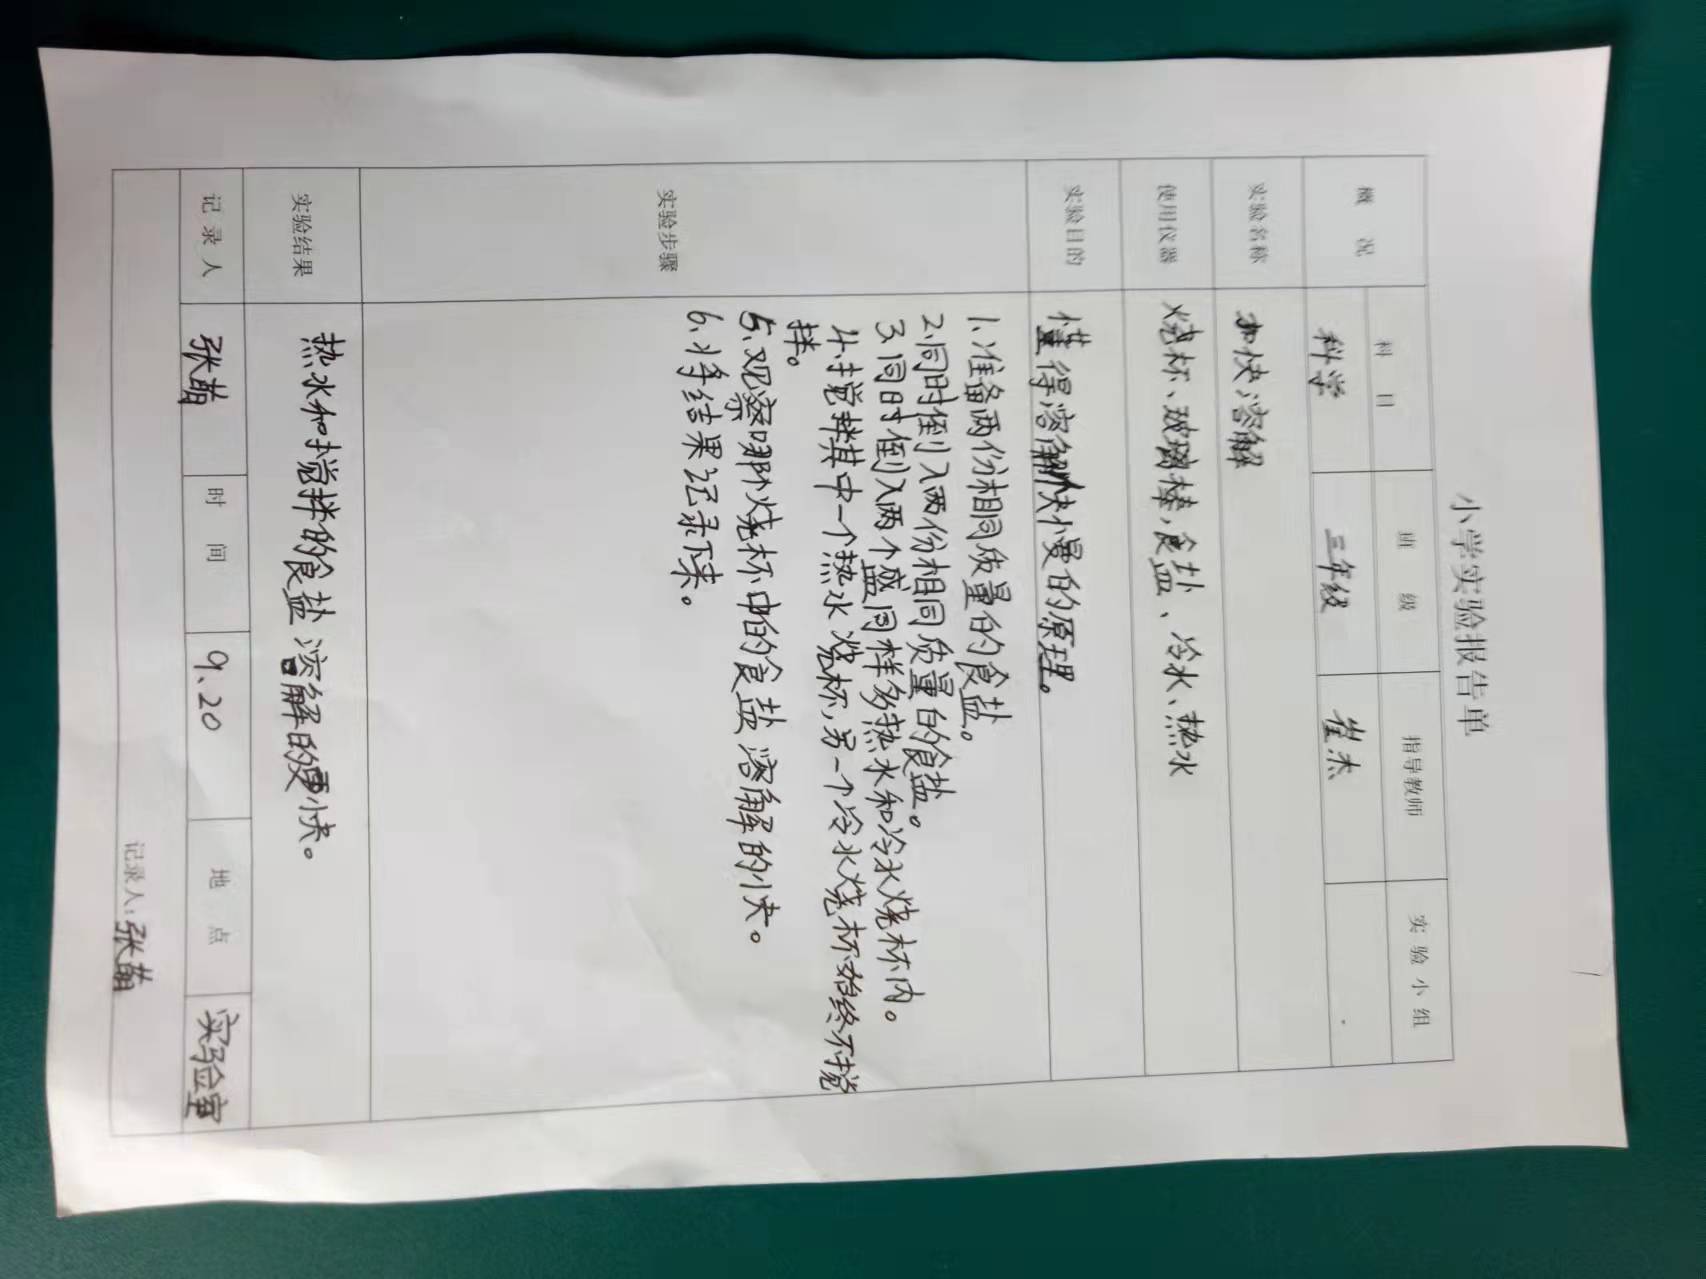 小学实验报告单
概 况
科 目
班 级
指导教师
实验小组
科学
三年级
崔杰
实验名称
加快溶解
使用仪器
烧杯、玻璃棒,食盐、冷水、热水
实验目的
懂得溶解快慢的原理。
实验步骤
1.准备两份相同质量的食盐。
2.同时倒入两份相同质量的食盐。
3.同时倒入两个盛同样多热水和冷水烧杯内。
4.搅拌其中一个热水烧杯,另一个冷水烧杯始终不搅
拌。
5.观察哪个烧杯中的食盐溶解的快。
6、将结果记录下来。
实验结果
热水和搅拌的食盐溶解的更快。
记录人
张萌
时 间
9.20
地 点
实验室
记录人:张萌